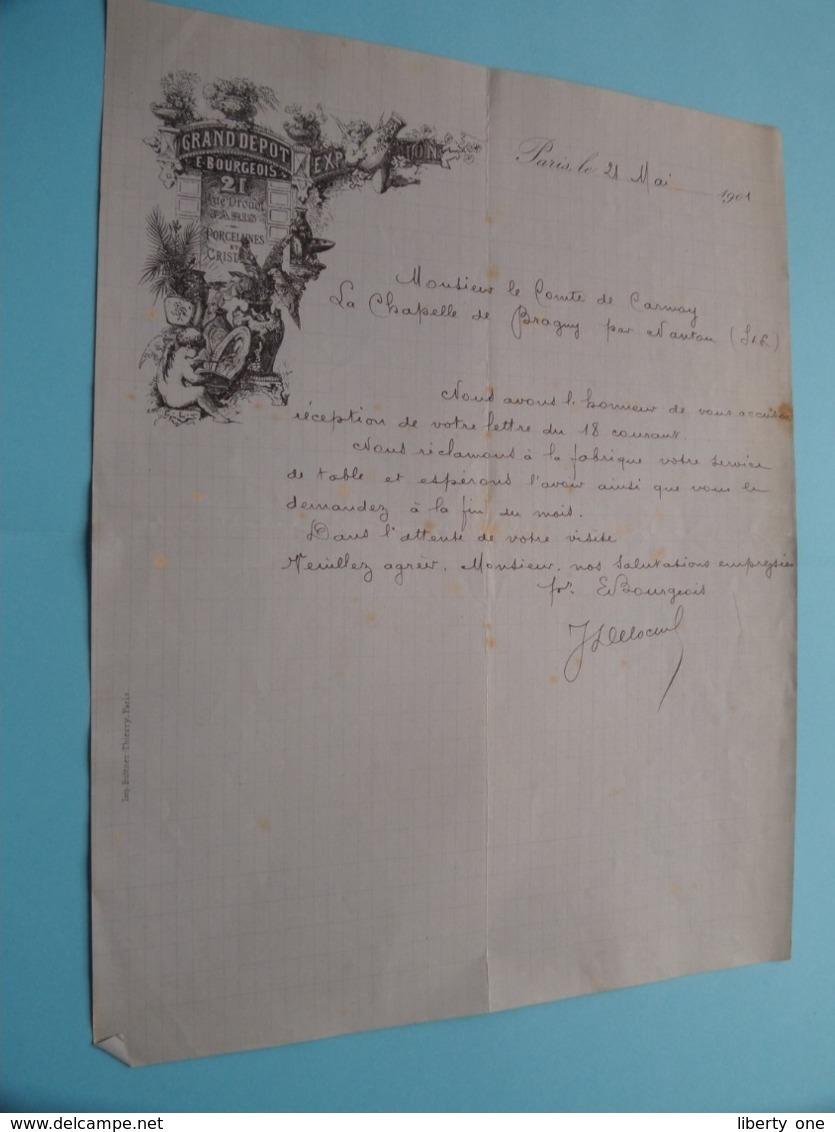 GRAND DEPOT
E. BOURGEOIS
21
Rue Drouot
PARIS
PORCELAINES
ET
Paris, le 21 Mai 1901
Monsieur le Comte de Carmoy
La Chapelle de Bragny par Nanton (S&L)
Nous avons l'honneur de vous accuser
réception de votre lettre du 18 courant.
Nous réclamons à la fabrique votre service
de table et espérons l'avoir ainsi que vous le
demandez à la fin du mois.
Dans l'attente de votre visite
Veuillez agréer, Monsieur, nos salutations empressées
pr. E Bourgeois
Imp. Buttner-Thierry, Paris
https://www.delcampe.net
liberty one